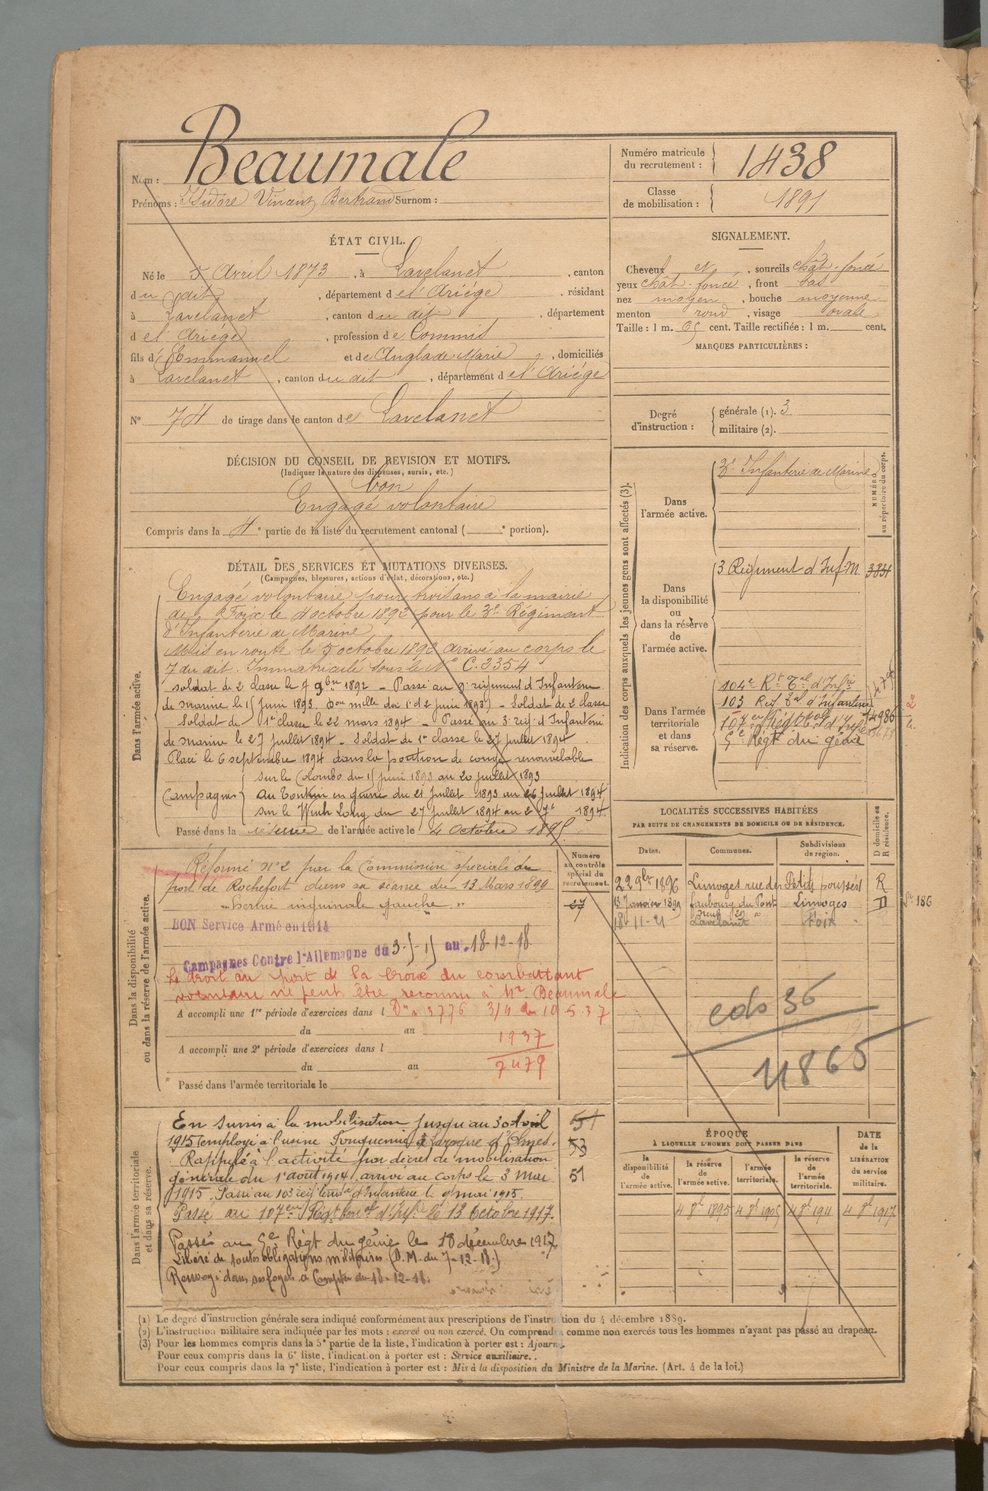 Nom : Beaumale
Prénoms : Isidore Vincent Bertrand Surnom :
Numéro matricule du recrutement : 1438
Classe de mobilisation : 1891
ÉTAT CIVIL.
Né le 5 Avril 1873, à Lavelanet, canton
du dit, département de l'Ariège, résidant
à Lavelanet, canton du dit, département
de l'Ariège, profession de Commis
fils d'Emmanuel et de Anglade Marie, domiciliés
à Lavelanet, canton du dit, département de l'Ariège
N° 74 de tirage dans le canton de Lavelanet
SIGNALEMENT.
Cheveux et, sourcils chât. foncé
yeux chât. foncé, front bas
nez moyen, bouche moyenne
menton rond, visage ovale
Taille : 1 m. 65 cent. Taille rectifiée : 1 m. cent.
MARQUES PARTICULIÈRES :
Degré d'instruction : générale (1). 3
militaire (2).
DÉCISION DU CONSEIL DE REVISION ET MOTIFS.
(Indiquer la nature des dispenses, sursis, etc.)
bon
Engagé volontaire
Compris dans la 4e partie de la liste du recrutement cantonal ( e portion).
DÉTAIL DES SERVICES ET MUTATIONS DIVERSES.
(Campagnes, blessures, actions d'éclat, décorations, etc.)
Dans l'armée active.
Engagé volontaire pour trois ans à la mairie
de Foix le 4 octobre 1892 pour le 3e Régiment
d'Infanterie de Marine
Mis en route le 5 octobre 1892 arrivé au corps le
7 du dit. Immatriculé sous le N° C. 2354
soldat de 2 classe le 9bre 1892 – Passé au 9 régiment d'Infanterie
de marine le 15 juin 1893. – Soldat de 2 classe
Soldat de 1re classe le 22 mars 1894 – Passé au 3 reg. d'Infanterie
de marine le 27 juillet 1894 – Soldat de 1re classe le 27 juillet 1894
Placé le 6 septembre 1894 dans la position de congé renouvelable
Campagnes
sur le Colombo du 15 juin 1893 au 20 juillet 1893
Au Tonkin en guerre du 21 juillet 1893 au 26 juillet 1894
sur le Winh Long du 27 juillet 1894 au 2 7bre 1894
Passé dans la réserve de l'armée active le 4 Octobre 1895
Indication des corps auxquels les jeunes gens sont affectés (3).
NUMÉRO au répertoire du corps.
Dans l'armée active.
3e Infanterie de Marine
Dans la disponibilité ou dans la réserve de l'armée active.
3 Régiment d'Inf M 384
Dans l'armée territoriale et dans sa réserve.
104e Rt Tal d'Infie
103 Regt Tal d'Infanterie
107eme Régt
5e Régt du génie
LOCALITÉS SUCCESSIVES HABITÉES
PAR SUITE DE CHANGEMENTS DE DOMICILE OU DE RÉSIDENCE.
Dates. Communes. Subdivisions de région. D domicile ou R résidence.
22 9bre 1896 Limoges rue des Petits R
13 Janvier 1899 faubourg du Pont neuf 29 Limoges D
18-11-21 Lavelanet Foix
cdo 36
11865
Dans la disponibilité ou dans la réserve de l'armée active.
Numéro au contrôle spécial du recrutement.
Réformé n° 2 par la Commission spéciale du
port de Rochefort dans sa séance du 13 Mars 1899
"hernie inguinale gauche"
BON Service Armé en 1914
Campagnes Contre l'Allemagne du 3-5-15 au 18-12-18.
Le droit au port de la croix du combattant
volontaire ne peut être reconnu à Mr Beaumale
A accompli une 1re période d'exercices dans l Don 3776 3/4 du 10 5 37
du au 1937
A accompli une 2e période d'exercices dans l
du au 2479
Passé dans l'armée territoriale le
Dans l'armée territoriale et dans sa réserve.
En sursis à la mobilisation jusqu'au 30 Avril
1915 employé à l'usine
Rappelé à l'activité par décret de mobilisation
générale du 1er août 1914, arrivé au corps le 3 mai
1915. Passé au 103 reg. territ. d'Infanterie le mai 1915.
Passé au 107eme Régt territ. d'Infie le 13 Octobre 1917.
Passé au 5e Régt du génie le 18 décembre 1917
Libéré de toutes obligations militaires (D.M. du 7-12-18.)
Renvoyé dans ses foyers à Compter du 18-12-18.
53
51
ÉPOQUE
À LAQUELLE L'HOMME DOIT PASSER DANS
la disponibilité de l'armée active. la réserve de l'armée active. l'armée territoriale. la réserve de l'armée territoriale.
DATE de la LIBÉRATION du service militaire.
4 8bre 1895 4 8bre 1905 4 8bre 1911 4 8bre 1917
(1) Le degré d'instruction générale sera indiqué conformément aux prescriptions de l'instruction du 4 décembre 1889.
(2) L'instruction militaire sera indiquée par les mots : exercé ou non exercé. On comprendra comme non exercés tous les hommes n'ayant pas passé au drapeau.
(3) Pour les hommes compris dans la 5e partie de la liste, l'indication à porter est : Ajourné.
Pour ceux compris dans la 6e liste, l'indication à porter est : Service auxiliaire.
Pour ceux compris dans la 7e liste, l'indication à porter est : Mis à la disposition du Ministre de la Marine. (Art. 4 de la loi.)